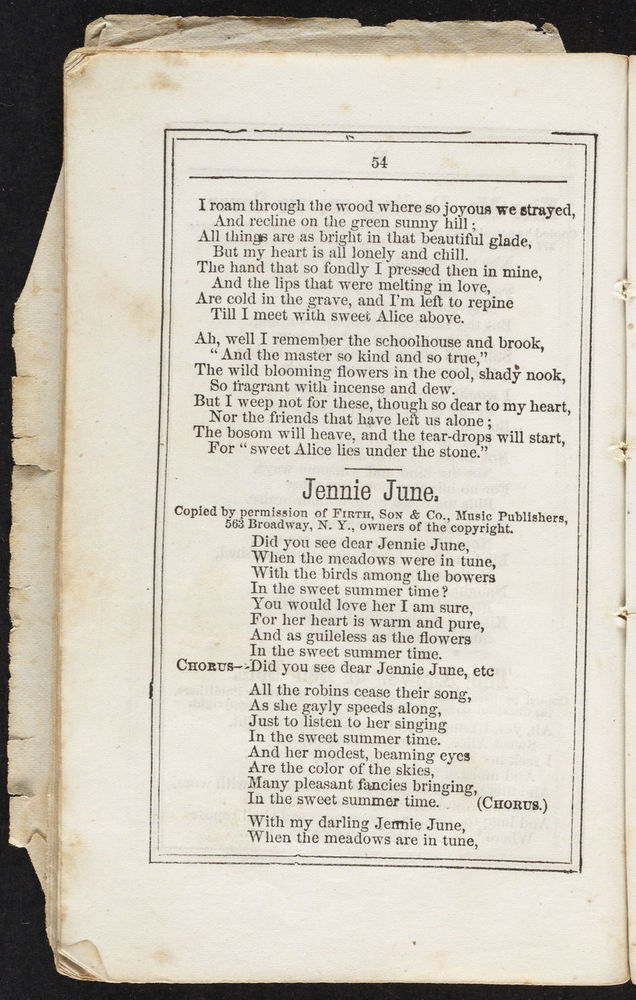 54
I roam through the wood where so joyous we strayed,
And recline on the green sunny hill;
All things are as bright in that beautiful glade,
But my heart is all lonely and chill.
The hand that so fondly I pressed then in mine,
And the lips that were melting in love,
Are cold in the grave, and I'm left to repine
Till I meet with sweet Alice above.
Ah, well I remember the schoolhouse and brook,
"And the master so kind and so true,"
The wild blooming flowers in the cool, shady nook,
So fragrant with incense and dew.
But I weep not for these, though so dear to my heart,
Nor the friends that have left us alone;
The bosom will heave, and the tear-drops will start,
For "sweet Alice lies under the stone."
Jennie June.
Copied by permission of FIRTH, SON & Co., Music Publishers,
563 Broadway, N. Y., owners of the copyright.
Did you see dear Jennie June,
When the meadows were in tune,
With the birds among the bowers
In the sweet summer time?
You would love her I am sure,
For her heart is warm and pure,
And as guileless as the flowers
In the sweet summer time.
CHORUS--Did you see dear Jennie June, etc
All the robins cease their song,
As she gayly speeds along,
Just to listen to her singing
In the sweet summer time.
And her modest, beaming eyes
Are the color of the skies,
Many pleasant fancies bringing,
In the sweet summer time. (CHORUS.)
With my darling Jennie June,
When the meadows are in tune,